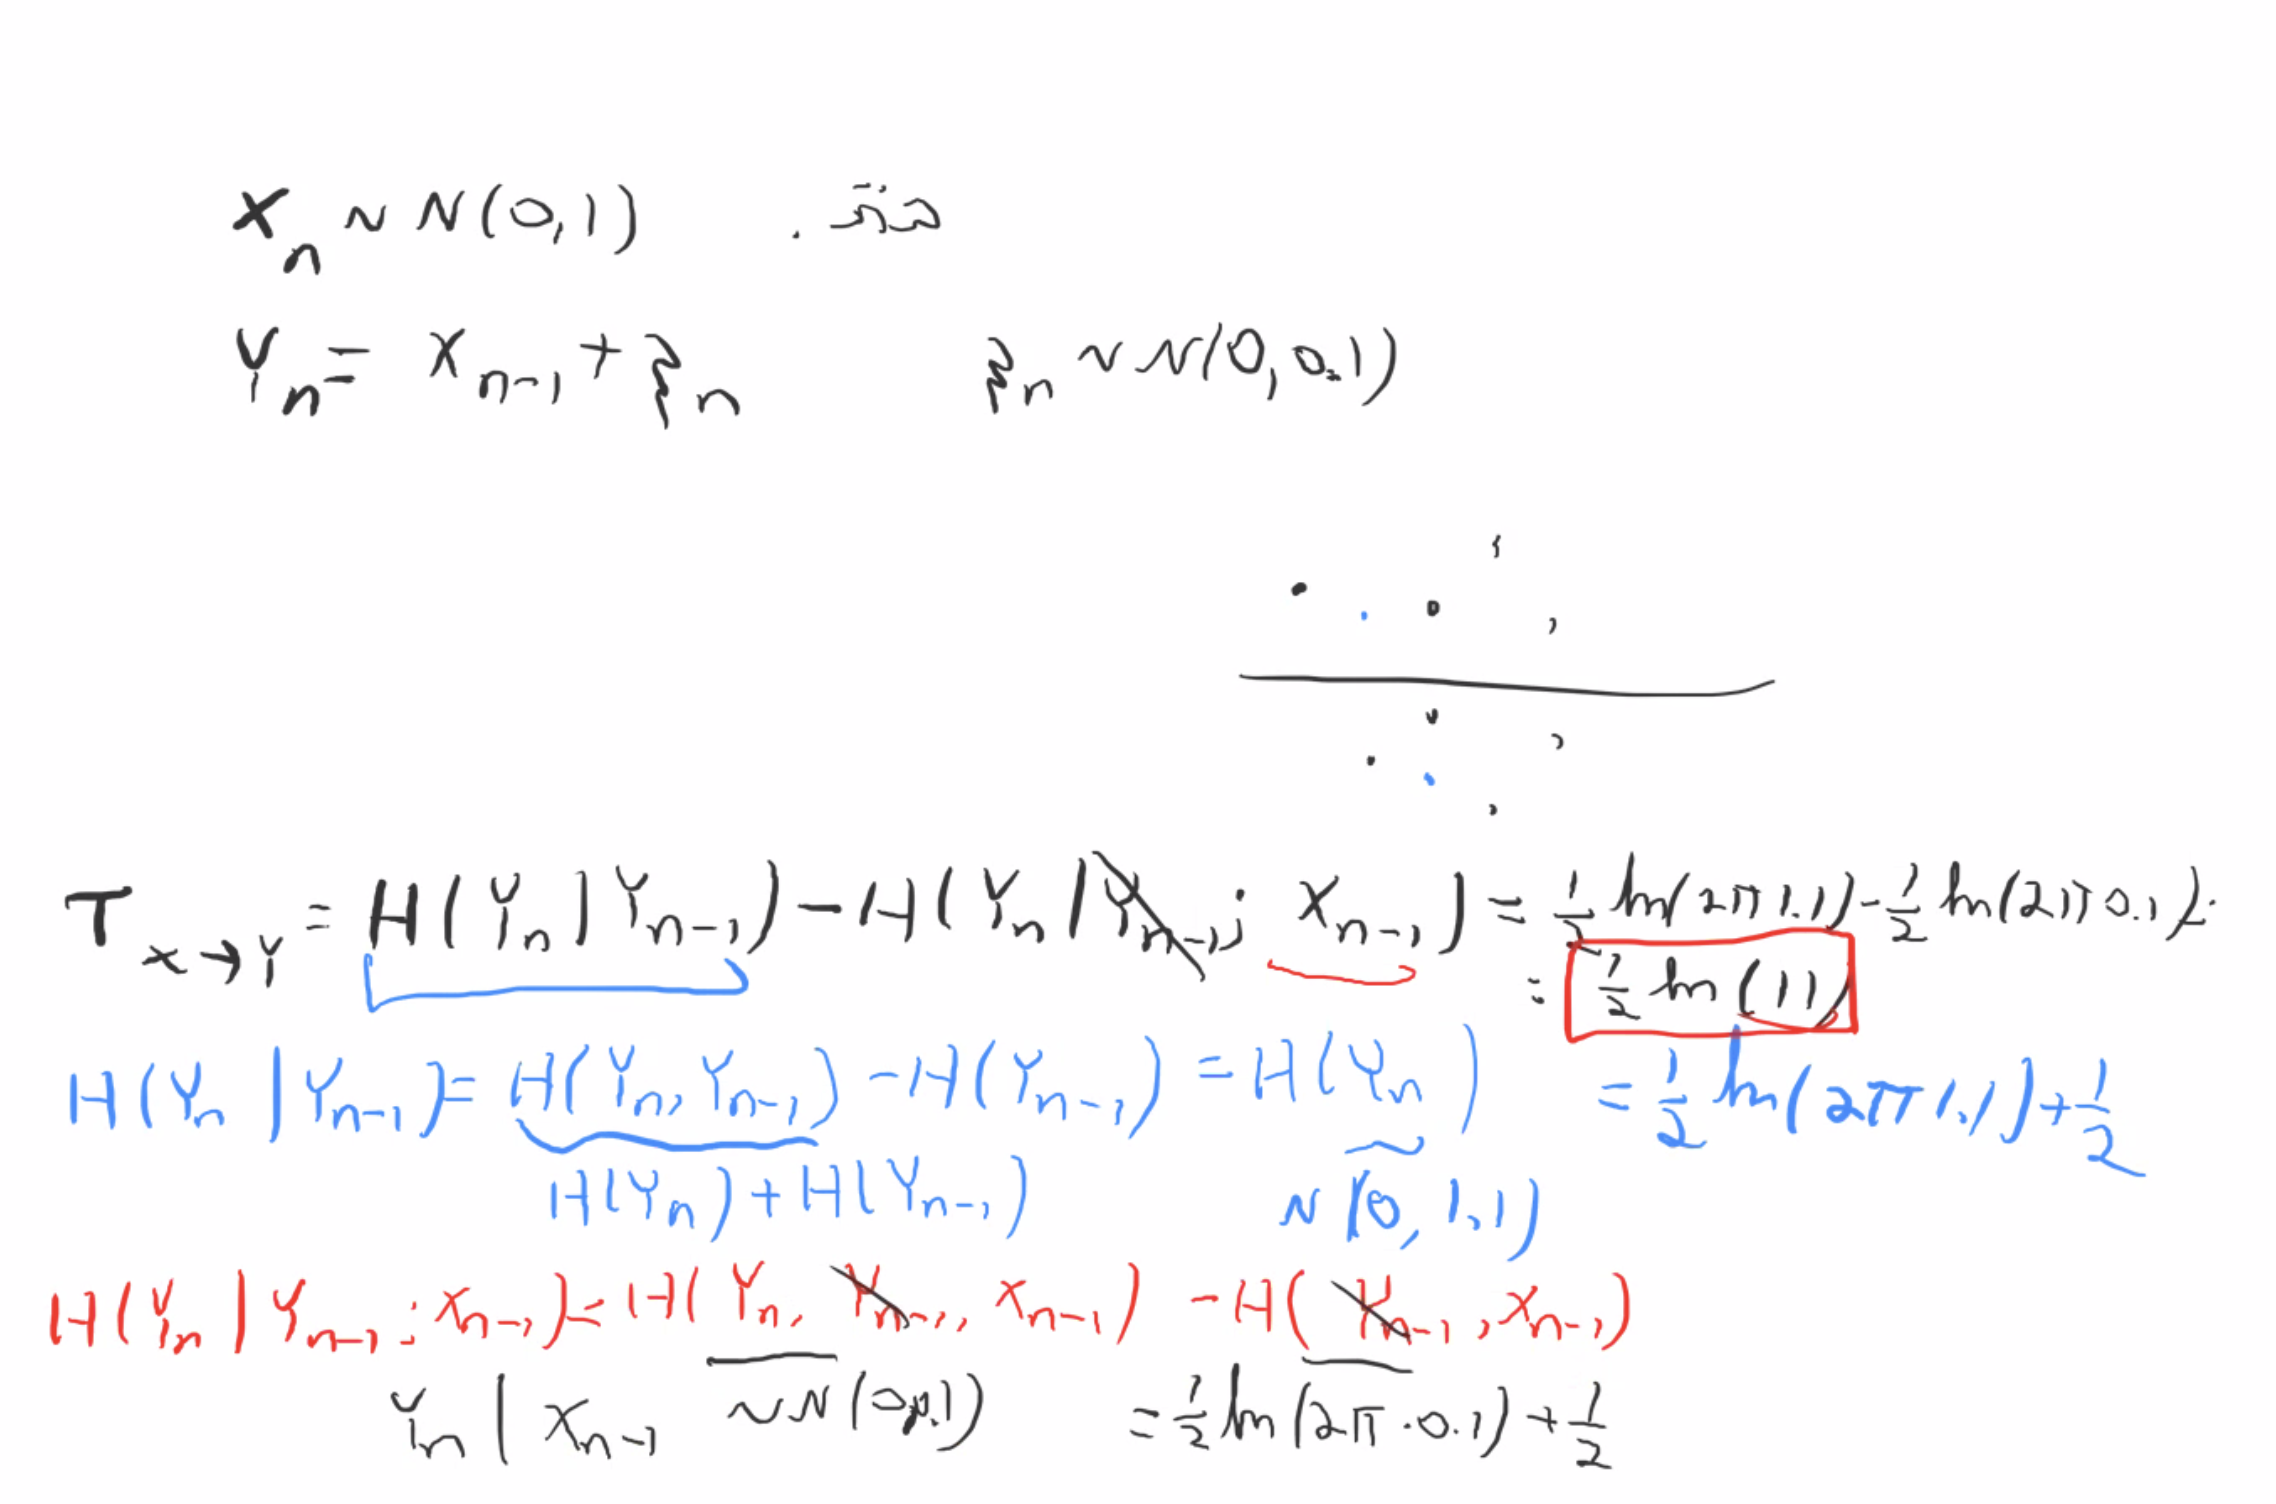 Xₙ ~ N(0,1)
Yₙ = Xₙ₋₁ + ξₙ ξₙ ~ N(0, 0.1)
T_{X→Y} = H(Yₙ|Yₙ₋₁) - H(Yₙ|Yₙ₋₁; Xₙ₋₁) = ½ ln(2π1.1) - ½ ln(2π0.1)
= ½ ln(11)
H(Yₙ|Yₙ₋₁) = H(Yₙ, Yₙ₋₁) - H(Yₙ₋₁) = H(Yₙ) = ½ ln(2π1.1) + ½
H(Yₙ) + H(Yₙ₋₁) N(0, 1.1)
H(Yₙ|Yₙ₋₁; Xₙ₋₁) = H(Yₙ, Yₙ₋₁, Xₙ₋₁) - H(Yₙ₋₁, Xₙ₋₁)
Yₙ | Xₙ₋₁ ~ N(0, 0.1) = ½ ln(2π·0.1) + ½